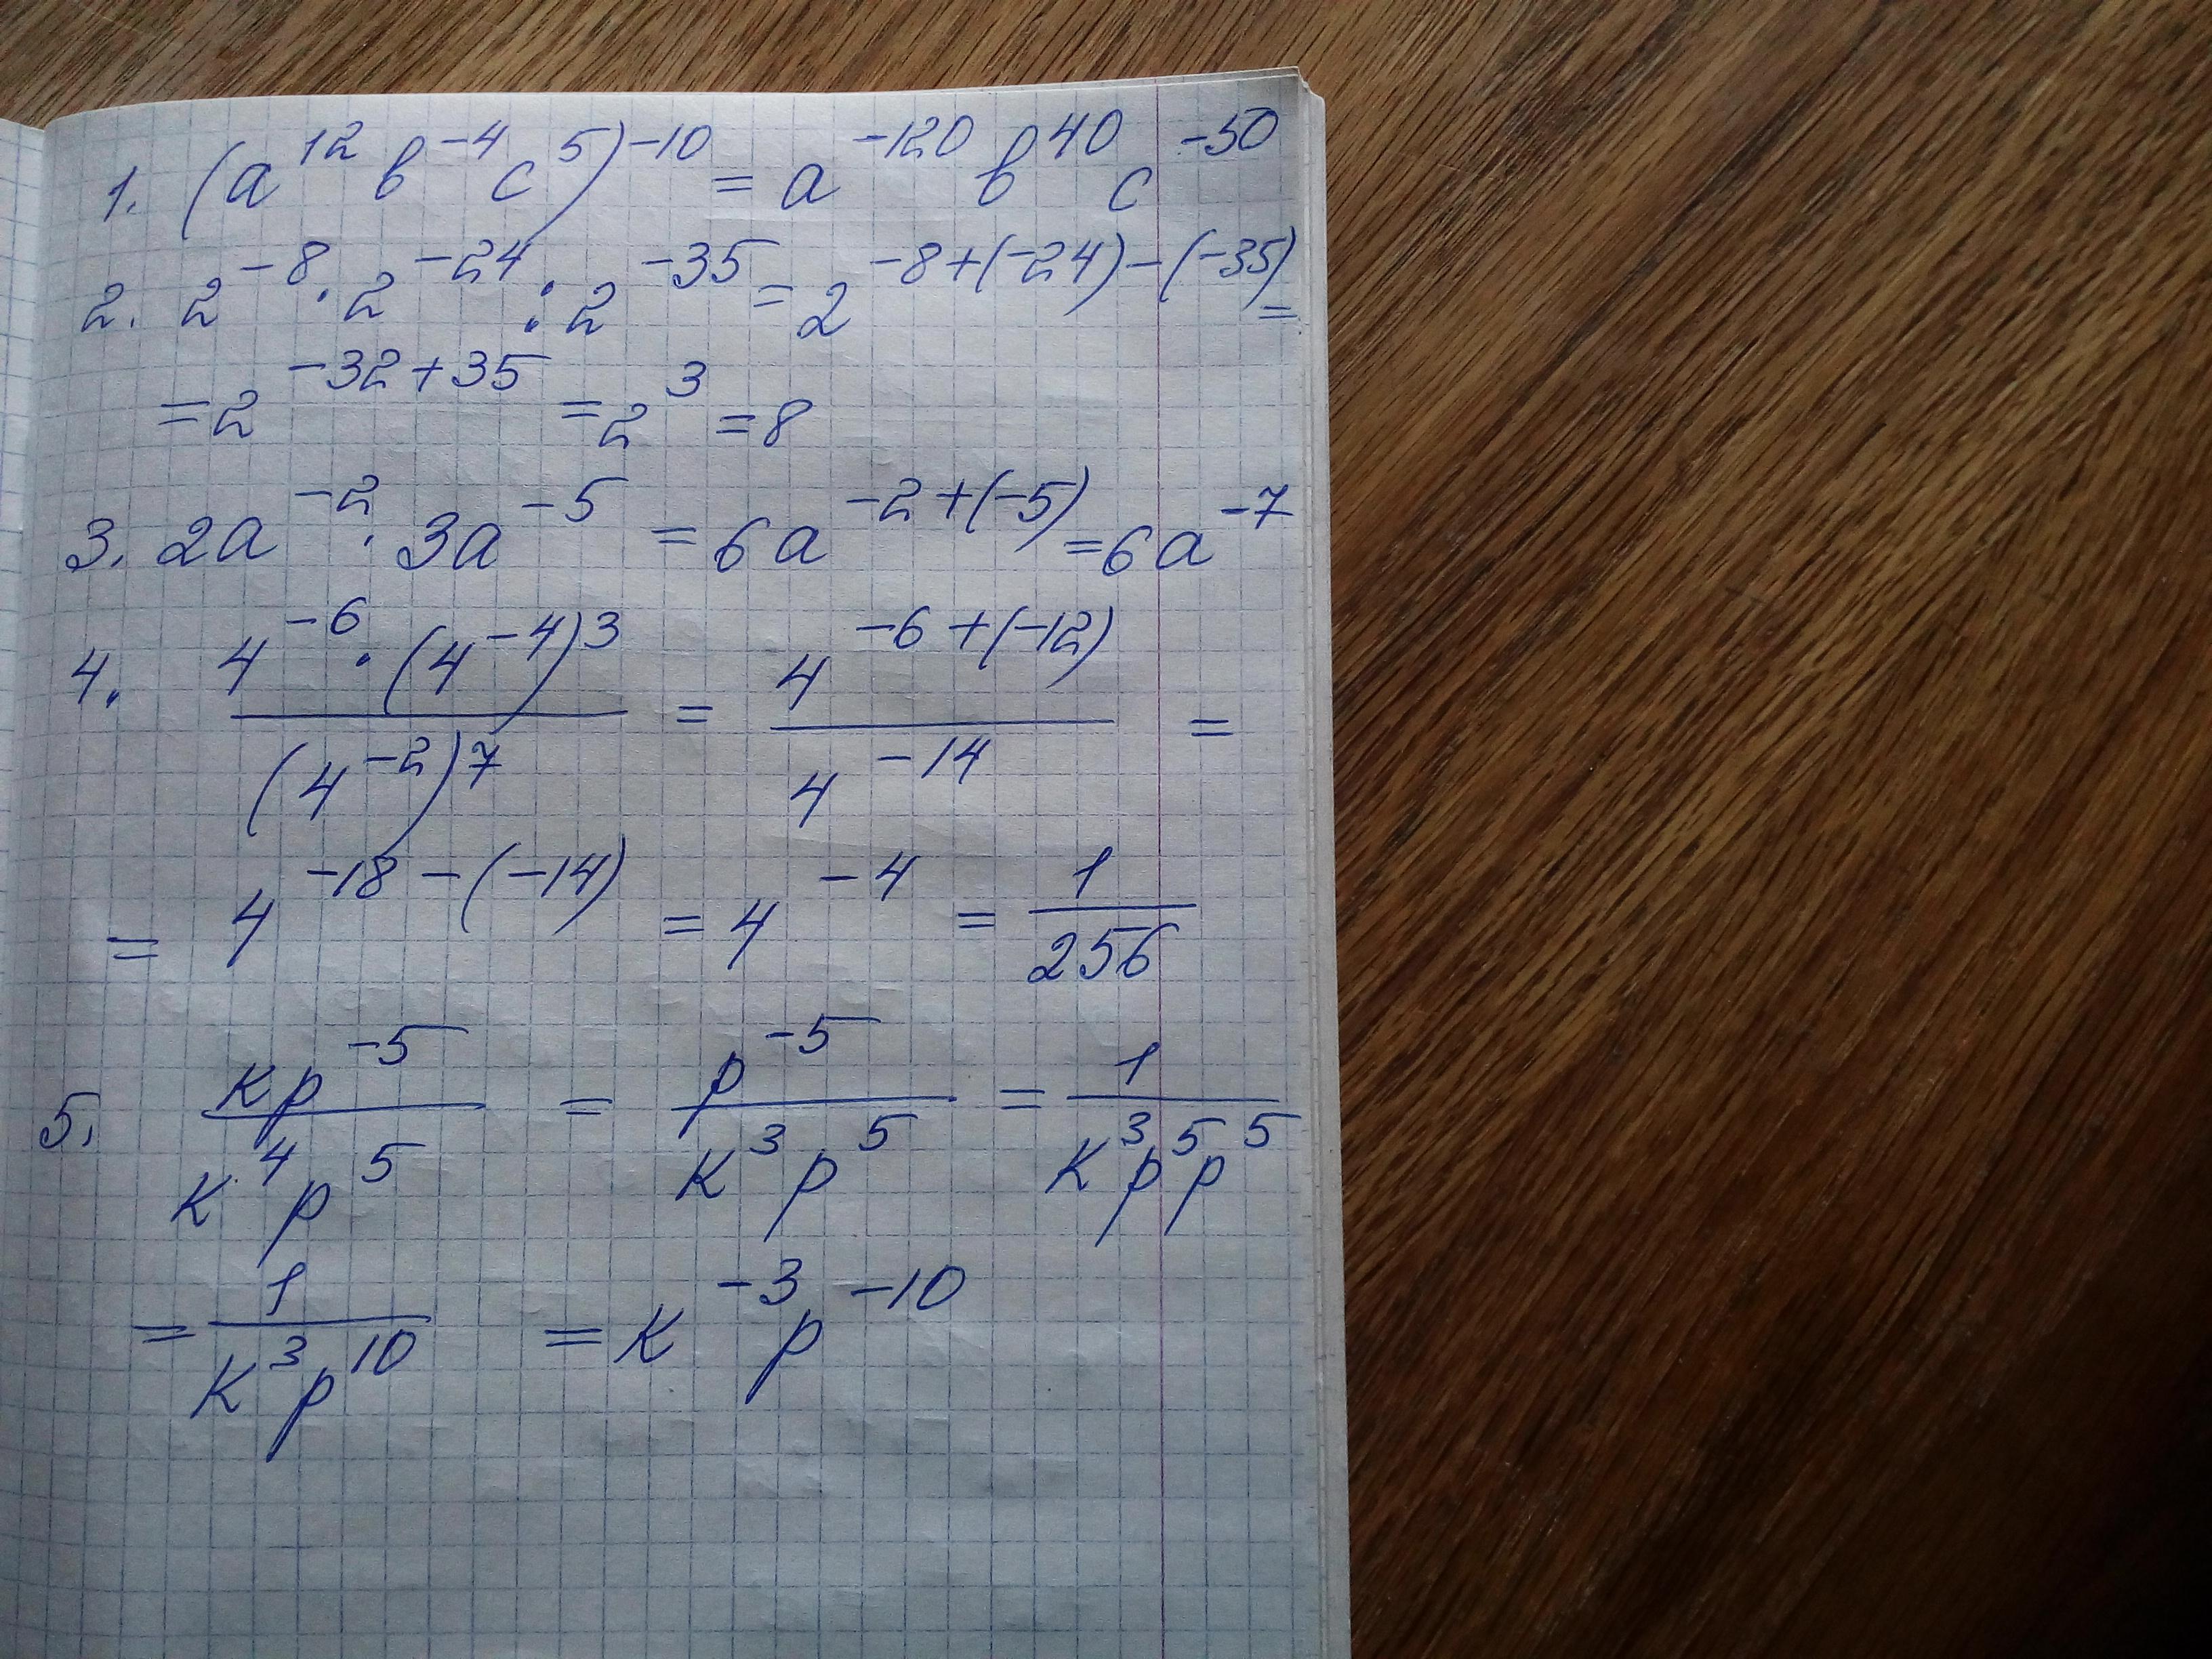 1. (a^12 b^-4 c^5)^-10 = a^-120 b^40 c^-50
2. 2^-8 · 2^-24 : 2^-35 = 2^(-8+(-24)-(-35)) =
= 2^(-32+35) = 2^3 = 8
3. 2a^-2 · 3a^-5 = 6a^(-2+(-5)) = 6a^-7
4. (4^-6 · (4^-4)^3) / (4^-2)^7 = 4^(-6+(-12)) / 4^-14 =
= 4^(-18-(-14)) = 4^-4 = 1/256
5. kp^-5 / k^4 p^5 = p^-5 / k^3 p^5 = 1 / k^3 p^5 p^5
= 1 / k^3 p^10 = k^-3 p^-10